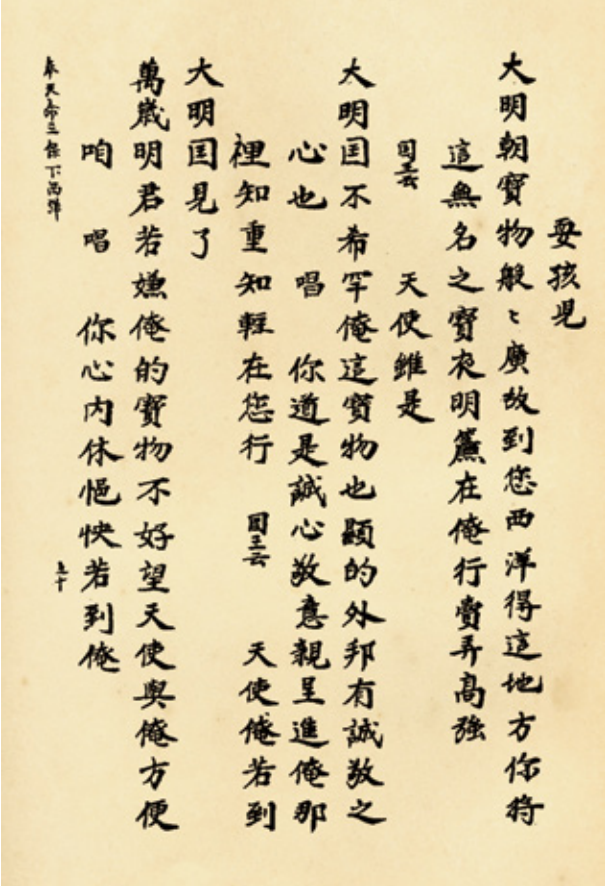 耍孩児
大明朝寳物般〻廣故到您西洋得這地方你将
這無名之寳夜明簾在俺行賣弄高強
囯王云　天使雖是
大明囯不希罕俺這寳物也顕的外邦有誠敬之
心也　唱　你道是誠心敬意親呈進俺那
裡知重知輕在您行　囯王云　天使俺若到
大明囯見了
萬歲明君若嫌俺的寳物不好望天使與俺方便
咱　唱　你心内休悒怏若到俺
奉天命三保下西洋
五十